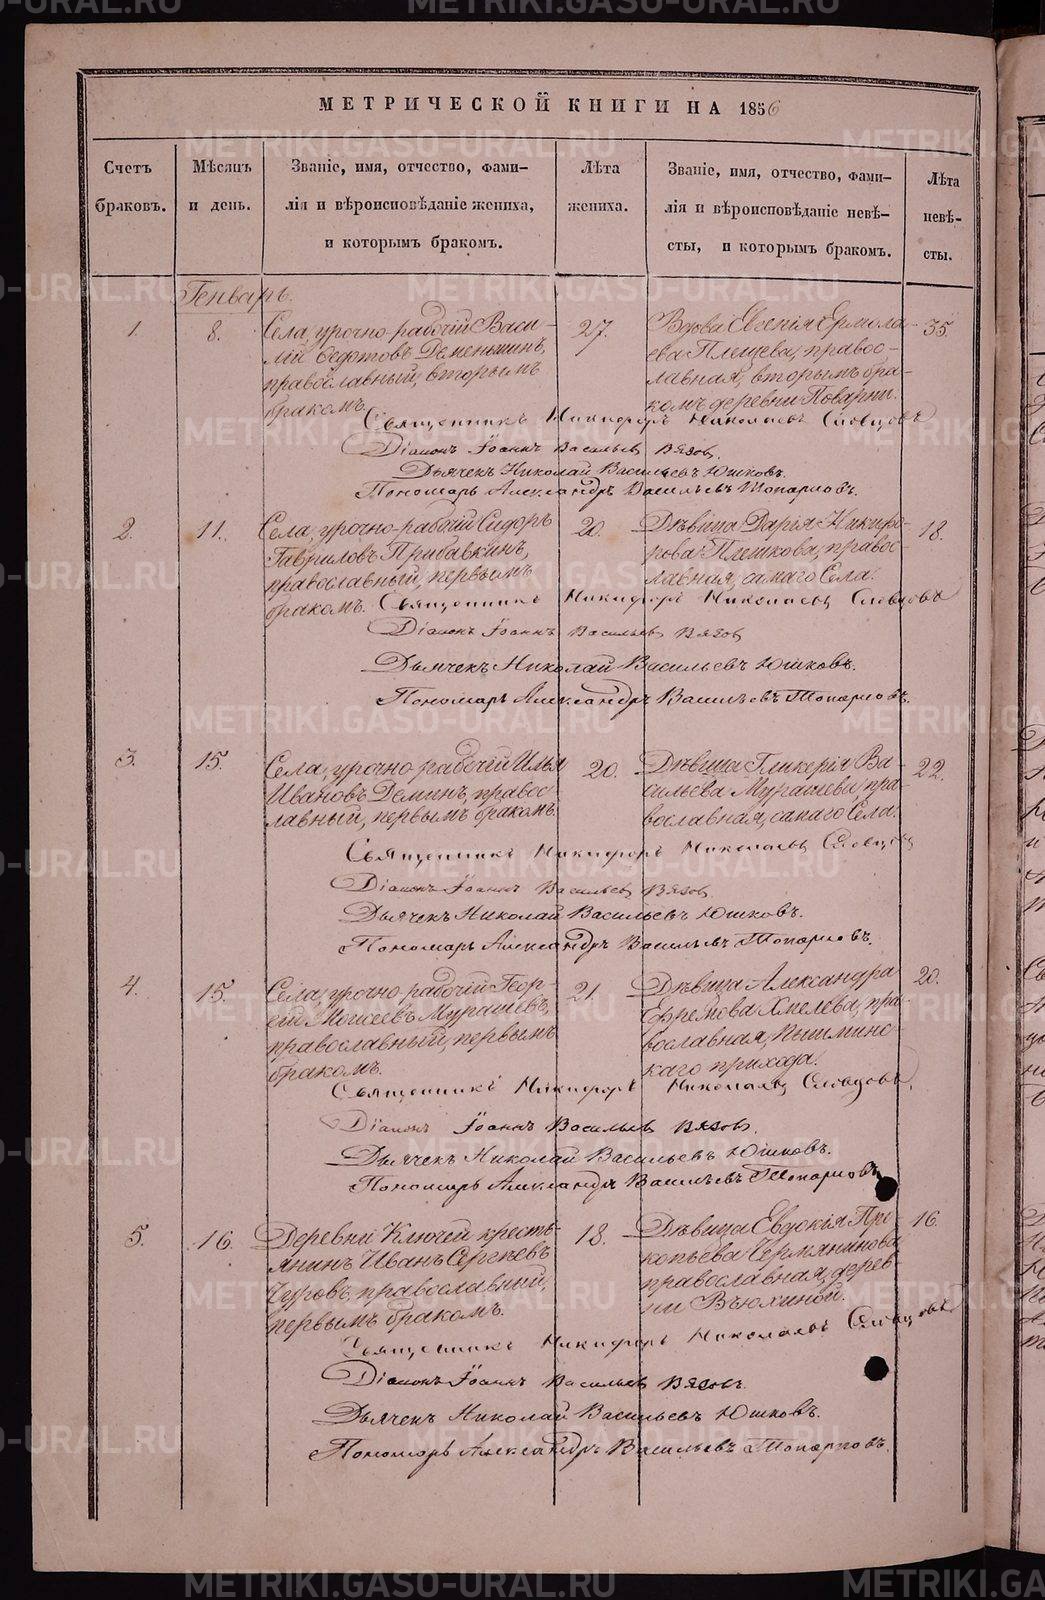 МЕТРИЧЕСКОЙ КНИГИ НА 1856
Счетъ браковъ.
Мѣсяцъ и день.
Званіе, имя, отчество, фами-
лія и вѣроисповѣданіе жениха,
и которымъ бракомъ.
Лѣта жениха.
Званіе, имя, отчество, фами-
лія и вѣроисповѣданіе невѣ-
сты, и которымъ бракомъ.
Лѣта невѣ-
сты.
Генварь.
1. 8.
Села, урочно-рабочій Васи-
лій Федотовъ Деменьшинъ,
православный, вторымъ
бракомъ.
27.
Вдова Евгенія Ермола-
ева Плещева, правос-
лавная, вторымъ бра-
комъ деревни Поварни.
35.
Священникъ Никифоръ Николаевъ Словцовъ
Діаконъ Іоаннъ Васильевъ Вязов.
Дьячекъ Николай Васильевъ Юшковъ.
Пономарь Александръ Васильевъ Топорковъ.
2. 11.
Села, урочно-рабочій Сидоръ
Гавриловъ Прибавкинъ,
православный, первымъ
бракомъ.
20.
Дѣвица Дарія Никифо-
рова Плешкова, правос-
лавная, самаго Села.
18.
Священникъ Никифоръ Николаевъ Словцовъ
Діаконъ Іоаннъ Васильевъ Вязов
Дьячекъ Николай Васильевъ Юшковъ.
Пономарь Александръ Васильевъ Топорковъ.
3. 15.
Села, урочно-рабочій Илья
Ивановъ Деминъ, правос-
лавный, первымъ бракомъ.
20.
Дѣвица Гликерія Ва-
сильева Мурашева, пра-
вославная, самаго Села.
22.
Священникъ Никифоръ Николаевъ Словцовъ
Діаконъ Іоаннъ Васильевъ Вязов
Дьячекъ Николай Васильевъ Юшковъ.
Пономарь Александръ Васильевъ Топорковъ.
4. 15.
Села, урочно-рабочій Геор-
гій Моисеевъ Мурашевъ,
православный, первымъ
бракомъ.
21.
Дѣвица Александра
Ефремова Хмелева, пра-
вославная, Пышминс-
каго прихода.
20.
Священникъ Никифоръ Николаевъ Словцовъ.
Діаконъ Іоаннъ Васильевъ Вязов.
Дьячекъ Николай Васильевъ Юшковъ.
Пономарь Александръ Васильевъ Топорковъ
5. 16.
Деревни Ключей кресть-
янинъ Иванъ Сергѣевъ
Чуровъ, православный,
первымъ бракомъ.
18.
Дѣвица Евдокія Про-
копьева Чермянинова
православная, дерев-
ни Вьюхиной.
16.
Священникъ Никифоръ Николаевъ Словцовъ
Діаконъ Іоаннъ Васильевъ Вязовъ.
Дьячекъ Николай Васильевъ Юшковъ.
Пономарь Александръ Васильевъ Топорковъ.
METRIKI.GASO-URAL.RU